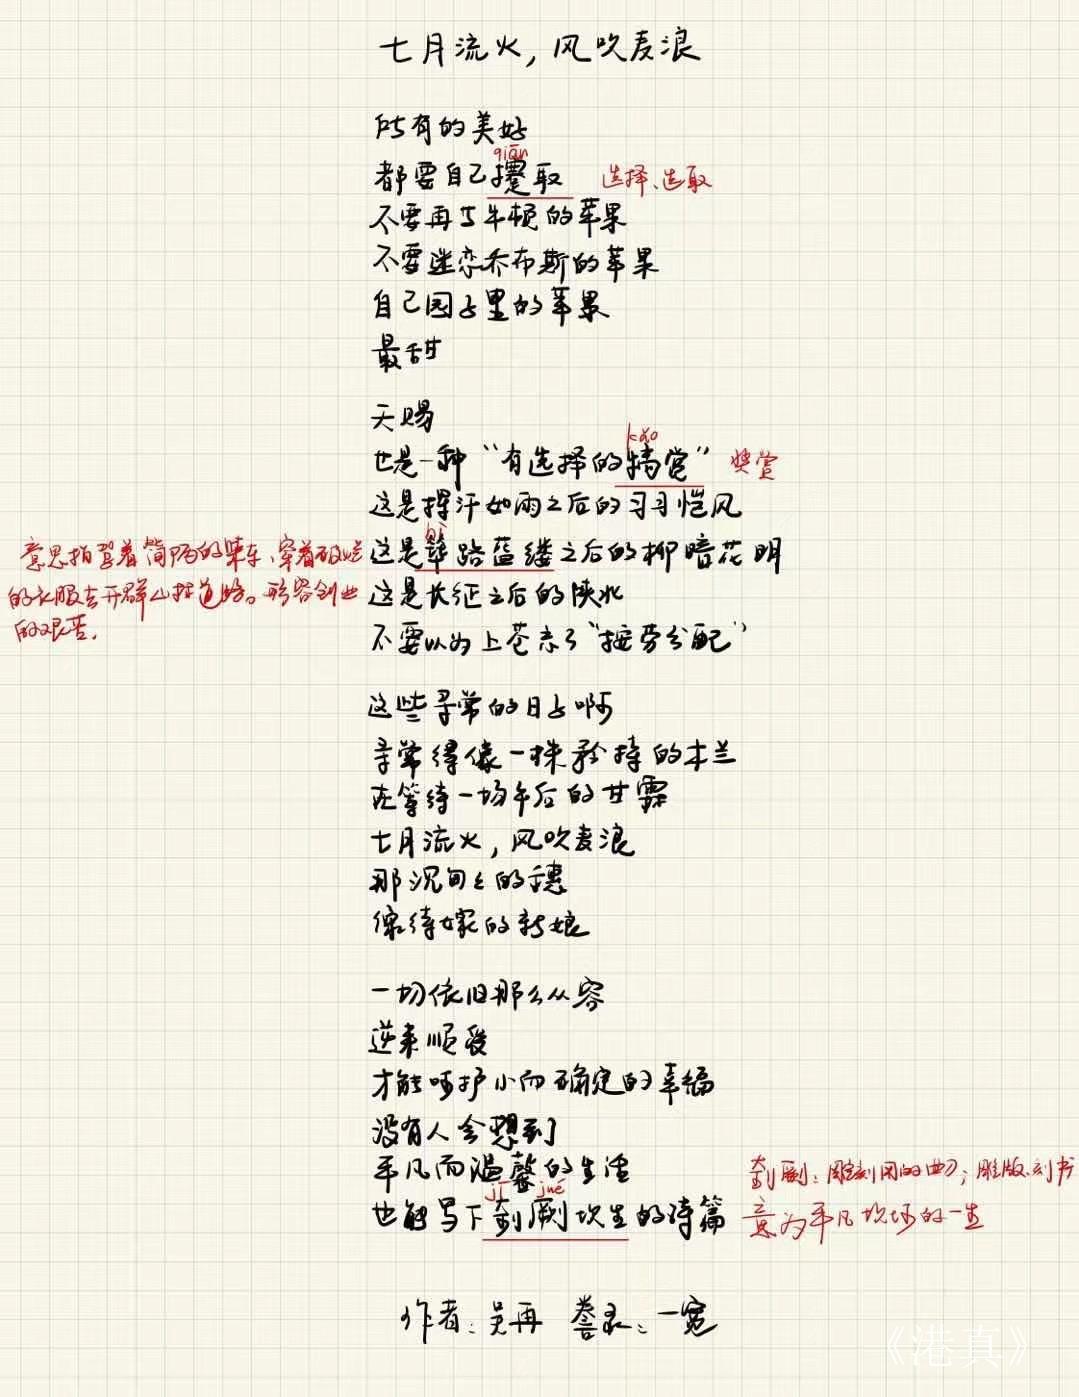 七月流火，风吹麦浪
所有的美好
qiān
都要自己搴取 选择、选取
不要再等牛顿的苹果
不要迷恋乔布斯的苹果
自己园子里的苹果
最甜
天赐
kào
也是一种“有选择的犒赏” 奖赏
这是挥汗如雨之后的习习恺风
bì
这是筚路蓝缕之后的柳暗花明
意思指驾着简陋的柴车、穿着破烂
的衣服去开辟山林道路。形容创业
的艰苦。
这是长征之后的陕北
不要以为上苍忘了“按劳分配”
这些寻常的日子啊
寻常得像一株矜持的木兰
在等待一场午后的甘霖
七月流火，风吹麦浪
那沉甸甸的穗
像待嫁的新娘
一切依旧那么从容
逆来顺受
才能呵护小而确定的幸福
没有人会想到
平凡而温馨的生活
jī jué
也能写下剞劂次生的诗篇
剞劂：雕刻用的曲刀；雕版、刻书
意为平凡坎坷的一生
作者：吴再 誊录：一宽
《港真》